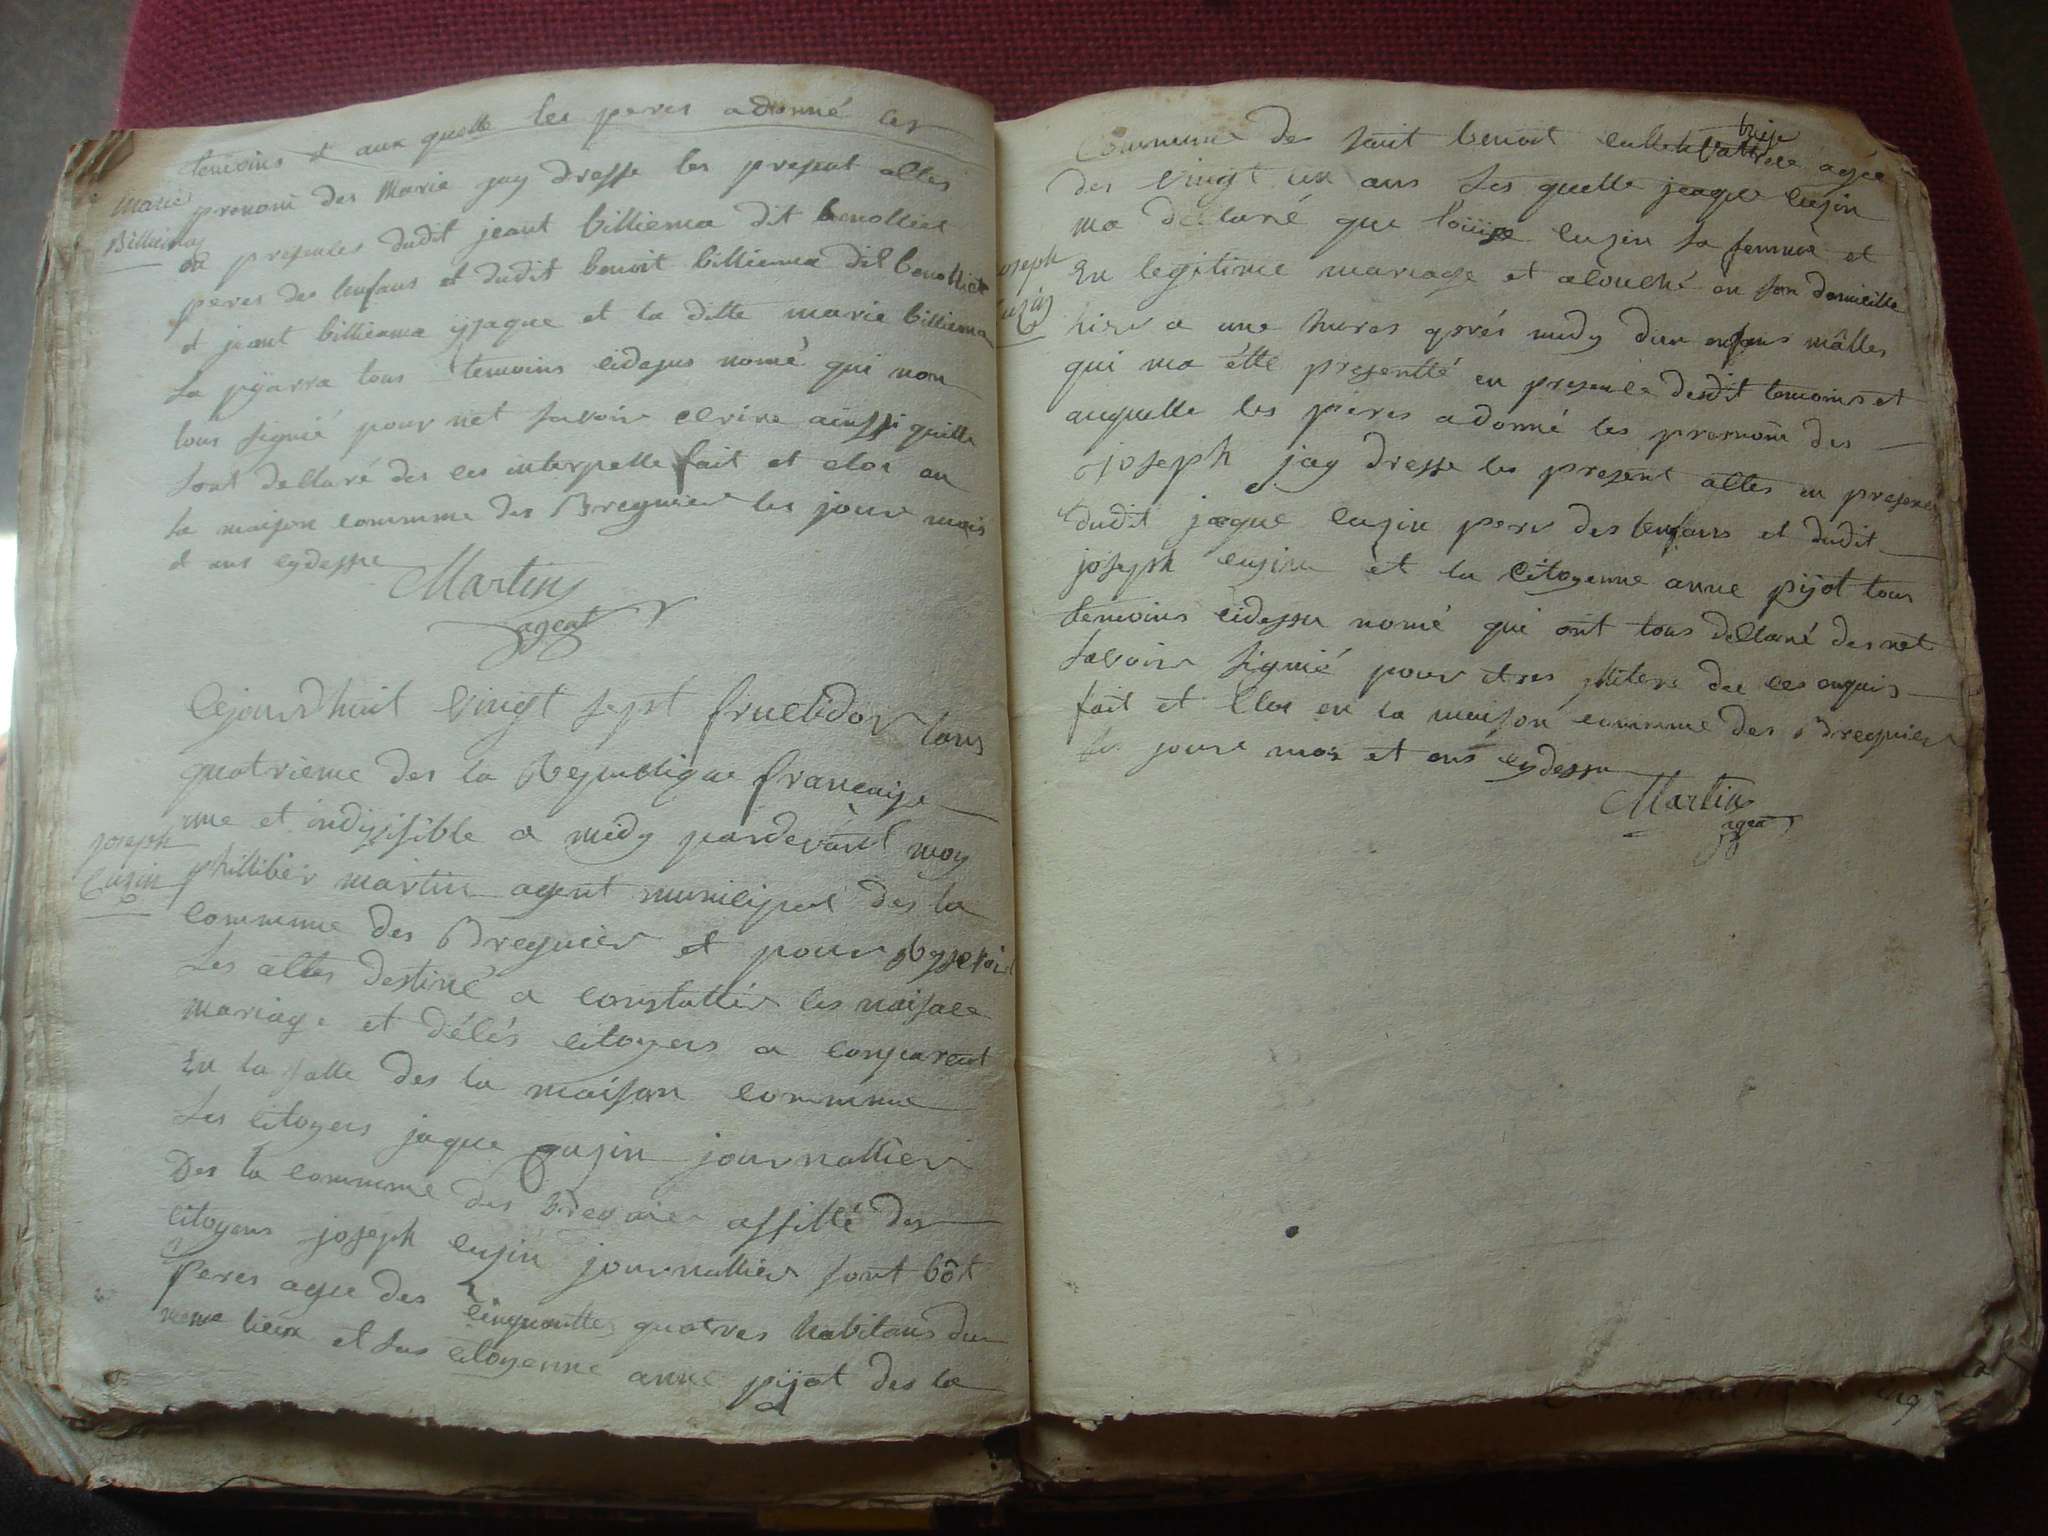 temoins et aux quelle les peres a donné les
Marie
Billiemaz
prenom des Marie jay dresse les present attes
en presentes dudit jeant billiema dit benottier
peres des lenfans et dudit benoit billiema dit benottier
et jeant billiema yjaque et la ditte marie billiema
la pyarra tous temoins cidesus nomé qui non
tous signié pour net savoir ecrire ainssi quille
sont dellaré des ces interpelle fait et clos en
la maison commune des Bregnier les jour mois
et ans cydessus
Martin
agent
Cejourdhuit vingt sept fructidor lans
quatrieme des la Republique francaise
une et indivisible a midy pardevant moy
Joseph
Cuzin
phillibér martin agent municipal des la
commune des Bregnier et pour
Les attes destiné a constattér les naisace
mariage et décés citoyens a conparent
En la salle des la maison commune
Les citoyens jaque cuzin journallier
Des la commune des Bregnier assisté des
citoyens joseph cuzin journallier sont bôt
peres agee des cinquantte quatres habitans du
meme lieux et sus citoyenne anne pijot des la
Commune des saint benoit agée
des vingt un ans les quelle jeaque cuzin
ma dellaré que louise cuzin sa femme et
Joseph
Cuzin
En legitime mariage et acouché en son domicille
hier a une hures aprés midy dun enfans mâlles
qui ma étte presentté en presence desdit temoins et
auquelle les péres a donné les prennom des
joseph jay dresse les present attes en presence
dudit jaque cuzin pere des lenfans et dudit
joseph cuzin et la citoyenne anne pijot tous
temoins cidessu nomé qui ont tous dellaré des net
savoir signié pour des ces enquis
fait et Clos en la maison commune des Bregnier
les jours mois et ans cydessu
Martin
agent